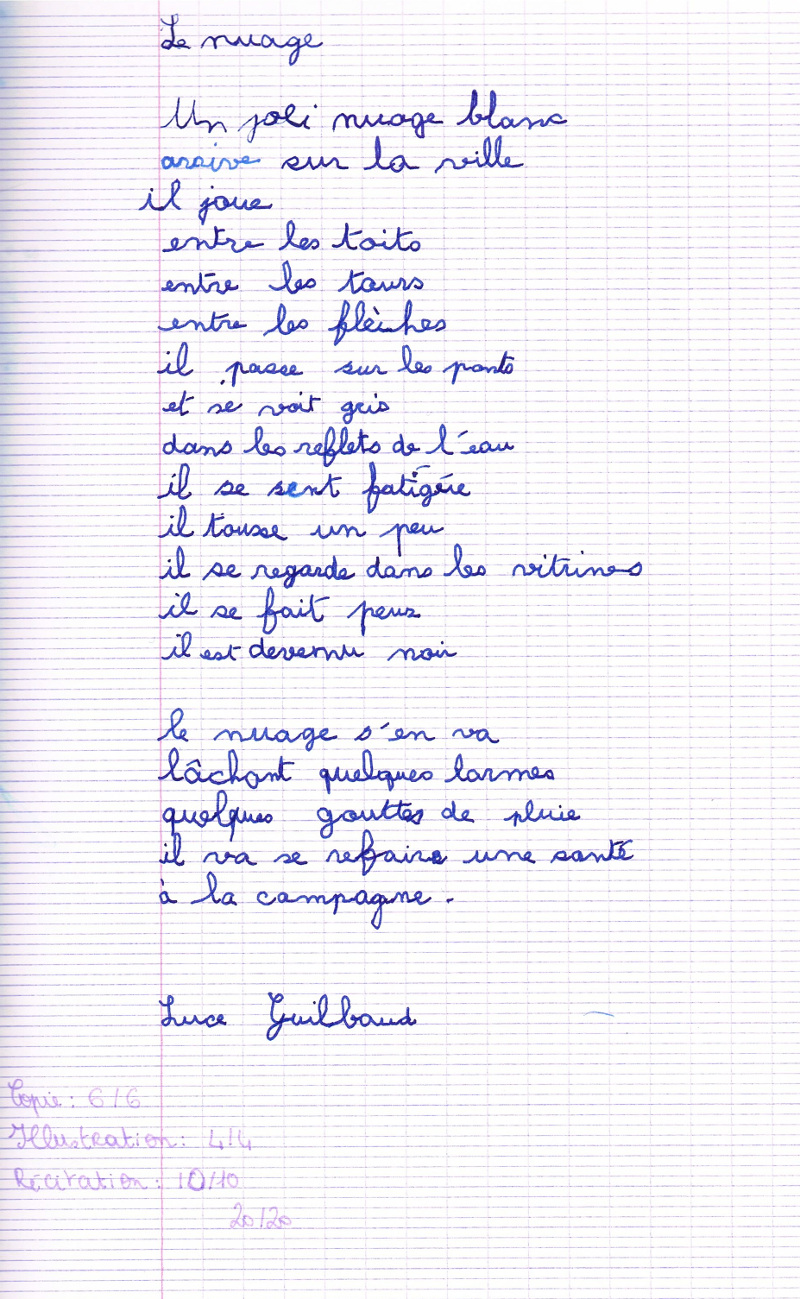 Le nuage
Un joli nuage blanc
arrive sur la ville
il joue
entre les toits
entre les tours
entre les flèches
il passe sur les ponts
et se voit gris
dans les reflets de l'eau
il se sent fatigée
il tousse un peu
il se regarde dans les vitrines
il se fait peur
il est devenu noir
le nuage s'en va
lâchant quelques larmes
quelques gouttes de pluie
il va se refaire une santé
à la campagne.
Luce Guilbaud
Copie : 6/6
Illustration : 4/4
Récitation : 10/10
20/20